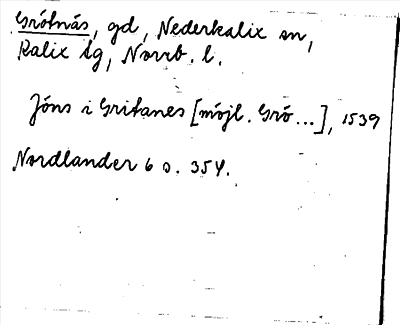 Grötnäs, gd, Nederkalix sn,
Kalix tg, Norrb. l.
Jöns i Gritanes [möjl. Grö...], 1539
Nordlander 6 s. 354.